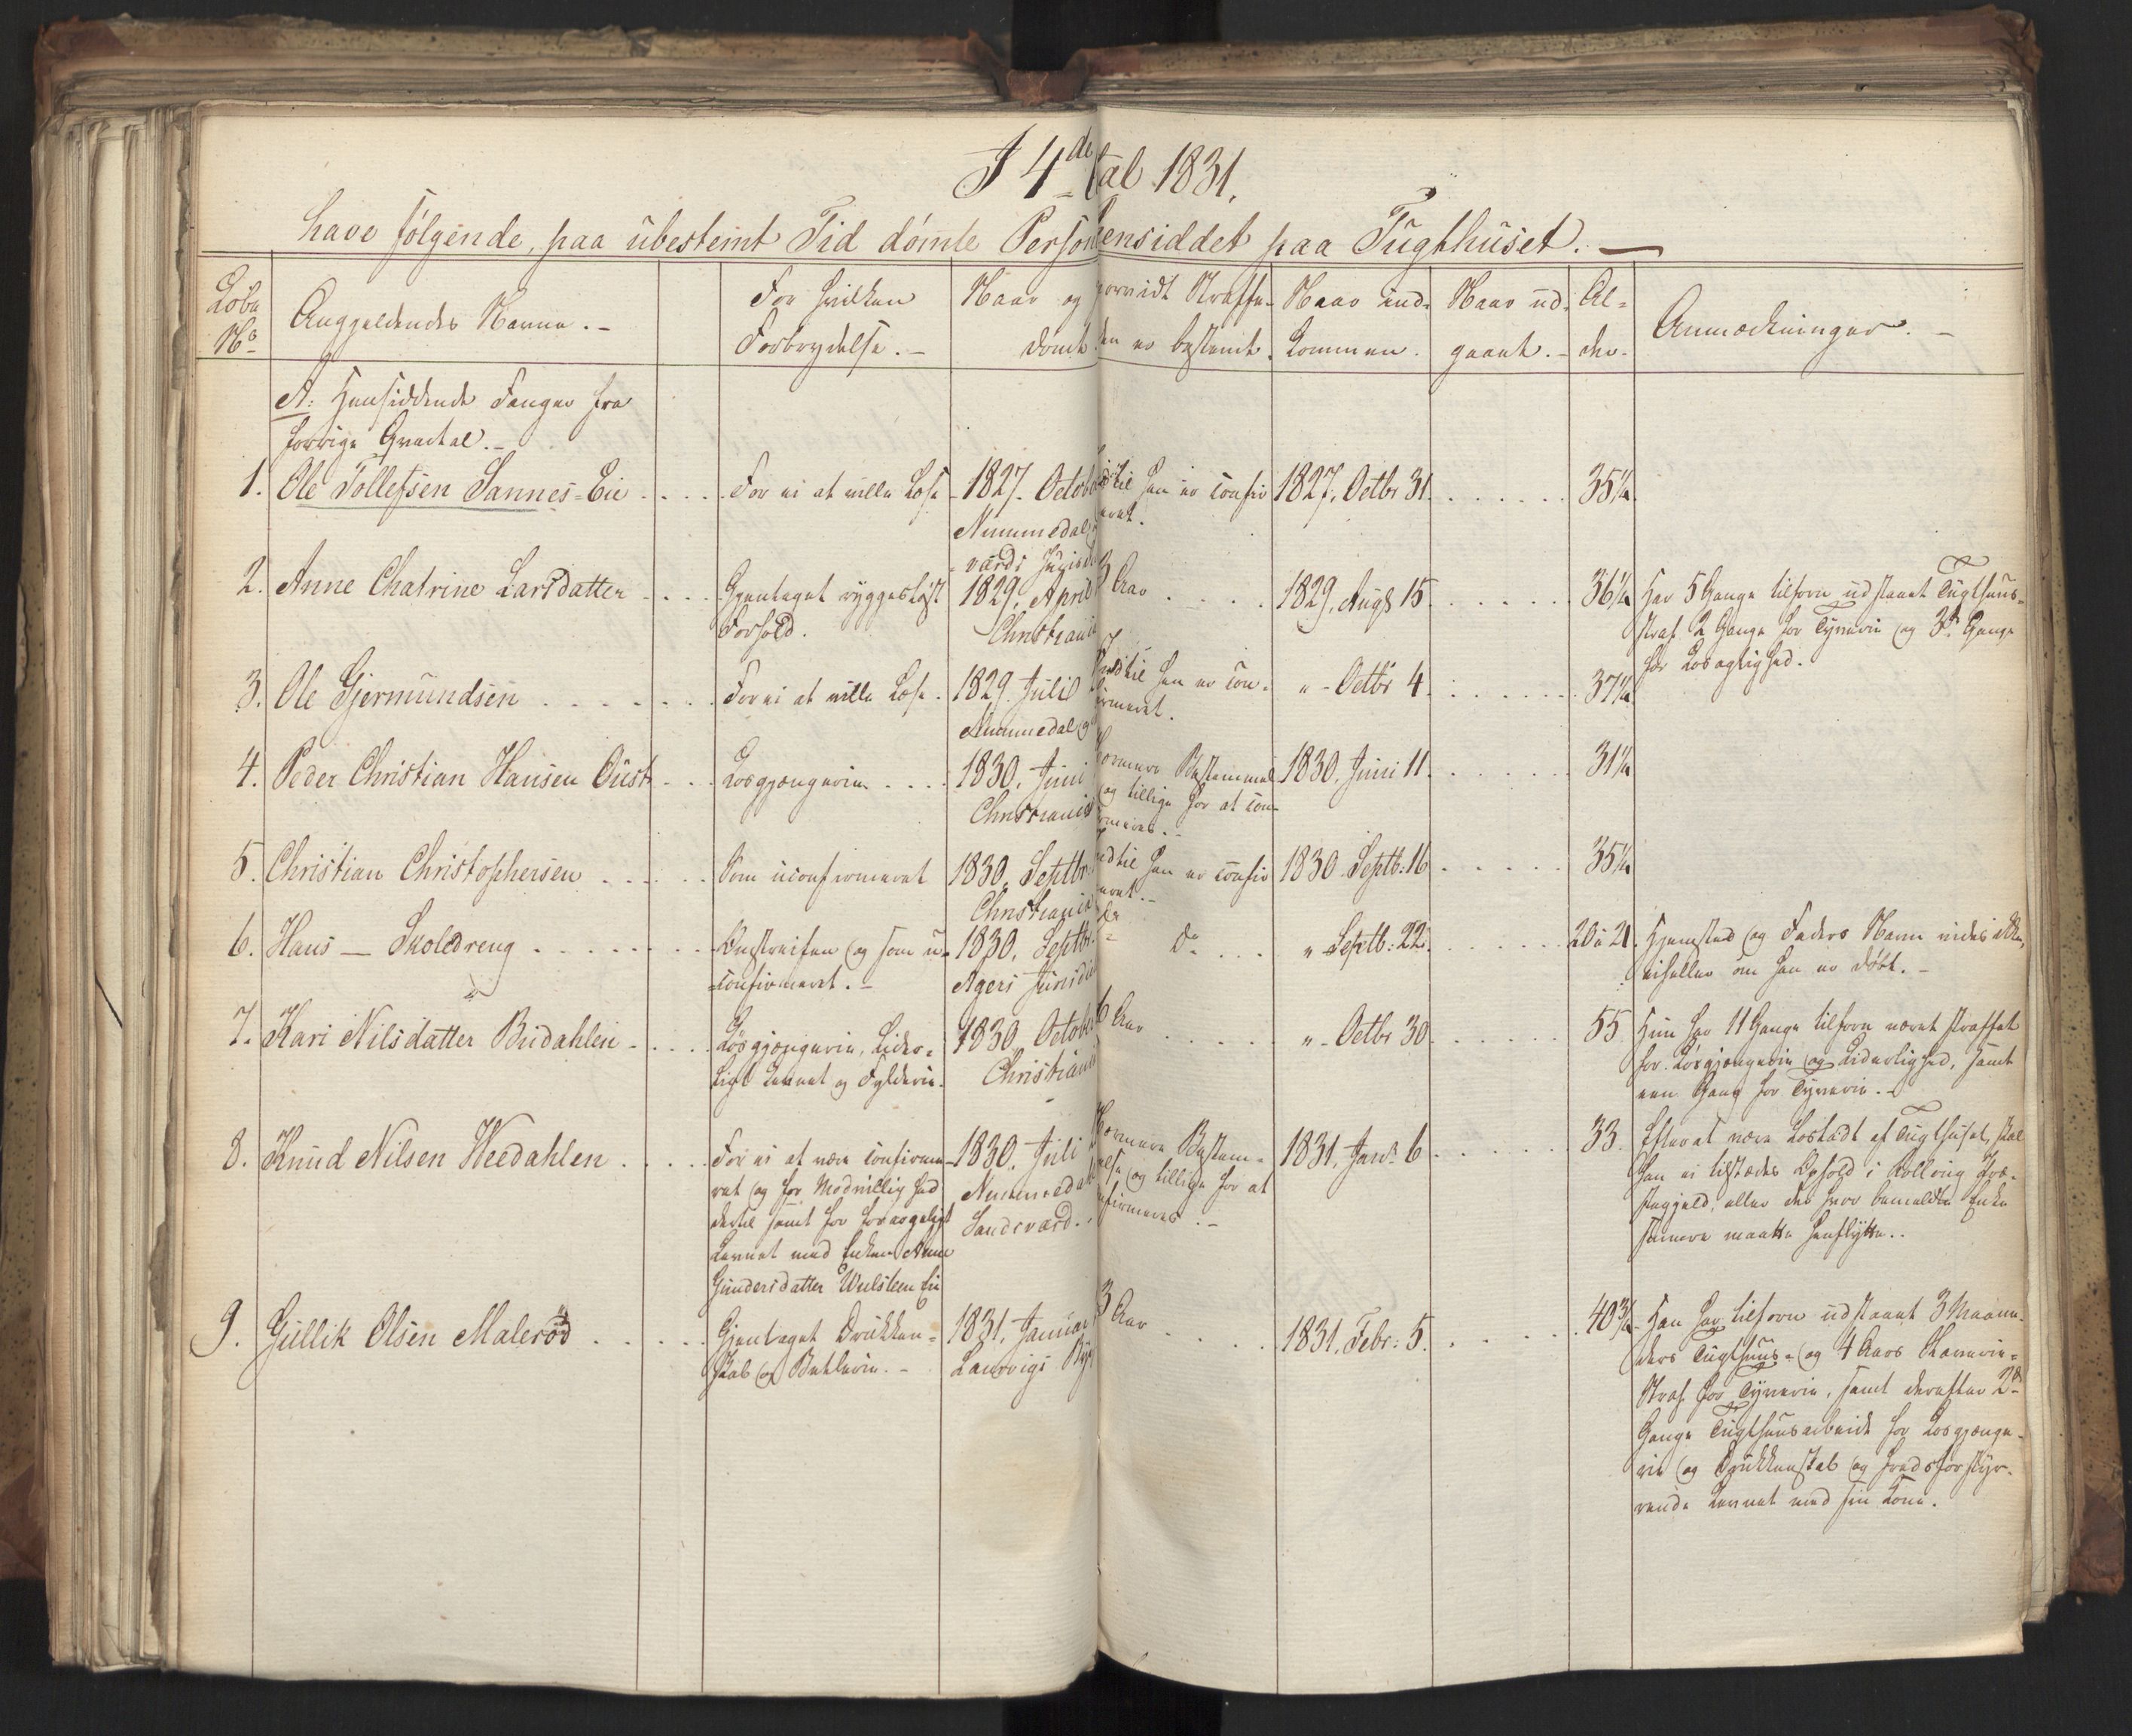 I 4de tal 1831.
have følgende, paa ubestemt Tid dømte Person hensiddet paa Tugthuset. —
Løbe No
Angjeldendes Navne. –
For hvilken Forbrydelse. –
Naar og
domt
hvorvidt Straffe-
den er bestemt.
Naar ind-
kommen.
Naar ud-
gaaet. –
Al-
der.
Anmærkninger. –
A: Hensiddende Fanger fra
forrige Qvartal. –
1. Ole Tollefsen Sannes-Eie . . . . For ei at ville læse – 1827. Octob
Nummedals
værds Jurisd
Indtil han er confir
meret.
1827, Octbr 31. . . . . 35 1/4
2. Anne Chatrine Larsdatter . . . . Gjentaget ryggesløst
Forhold.
1829, April
Christiania
3 Aar . . . . 1829, Augs 15. . . . . 36 1/4
Har 5 Gange tilforn udstaaet Tugthuus-
straf 2 Gange for Tyverie og 3de Gange
for Løsagtighed.
3. Ole Gjermundsen . . . . For ei at ville læse. 1829. Julii
Nummedal og
Indtil han er con-
firmeret.
" - Octbr 4. . . . . 37 1/4
4. Peder Christian Hansen Oust . . . Løsgjængerie . . . . 1830. Juni
Christiania
Nærmere Bestemmel
og tillige for at con-
firmeres. –
1830. Juni 11. . . . . 31 1/4
5. Christian Christophersen . . . . Som uconfirmeret 1830. Septbr
Christiania
Indtil han er confir
meret. –
1830 Septb: 16 . . . . 35 1/4
6. Hans — Skoledreng . . . . Omstreifen og som u-
confirmeret. –
1830. Septbr
Agers Jurisdic
Do Do . . . " Septb: 22. . . . . 20 à 21.
Hjemsted og Faders Navn vides ikke,
eiheller om han er døbt. –
7. Kari Nilsdatter Budahlen – . . . . Løsgjængerie, Lider-
ligt Levnet og Fylderie.
1830, October
Christiania
6 Aar . . . . " - Octbr 30 . . . . 55
Hun har 11 Gange tilforn været straffet
for Løsgjængerie og Liderlighed, samt
een Gang for Tyverie. –
8. Knud Nilsen Weedahlen . . . . For ei at være confirme-
ret og for Modvillighed
dertil samt for forargeligt
Levnet med Enken Anne
Gundersdatter Wulsteen Eie
1830. Juli
Nummedal
Sandsværd. .
Nærmere Bestem-
melse og tillige for at
confirmeres. –
1831. Janr 6 . . . . 33
Efter at være løsladt af Tugthuset, skal
han ei tilstædes Ophold i Rolloug Præ-
stegjeld, eller der hvor bemeldte Enke
senere maatte henflytte..
9. Gullik Olsen Malerød . . . . Gjentaget Drukken-
skab og Betlerie. –
1831. Januar
Laurvigs Bye
3 Aar . . . 1831. Febr: 5. . . . . 40 3/4
Han har tilforn udstaaet 3 Maane-
ders Tugthuus- og 4 Aars Slaverie-
Straf for Tyverie, samt derefter 2de
Gange Tugthuusarbeide for Løsgjænge-
rie og Drukkenskab og fredsforstyr-
rende Levnet med sin Kone.